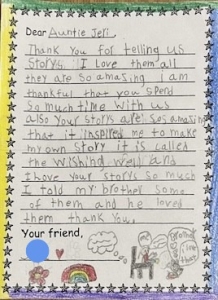 Dear Auntie Jeli,
Thank You for telling us
storys. I Love them all
they are so amazing i am
thankful that you spend
so much time with us
also your storys are sos amazing
that it inspired me to make
my own story it is called
the wishing well and
I love your storys so much
I told my brother some
of them and he loved
them thank you.
Your friend,